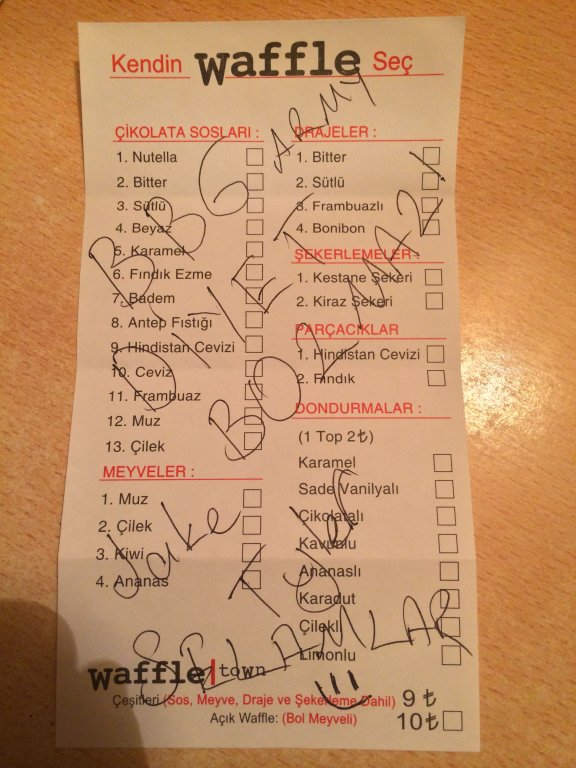 Kendin waffle Seç
ÇİKOLATA SOSLARI :
1. Nutella
2. Bitter
3. Sütlü
4. Beyaz
5. Karamel
6. Fındık Ezme
7. Badem
8. Antep Fıstığı
9. Hindistan Cevizi
10. Ceviz
11. Frambuaz
12. Muz
13. Çilek
MEYVELER :
1. Muz
2. Çilek
3. Kiwi
4. Ananas
DRAJELER :
1. Bitter
2. Sütlü
3. Frambuazlı
4. Bonibon
ŞEKERLEMELER :
1. Kestane Şekeri
2. Kiraz Şekeri
PARÇACIKLAR
1. Hindistan Cevizi
2. Fındık
DONDURMALAR :
(1 Top 2₺)
Karamel
Sade Vanilyalı
Çikolatalı
Kavunlu
Ananaslı
Karadut
Çilekli
Limonlu
BBG ARMY
DİYET
BOZMAZ!
Jake
Tyler
SELAMLAR
waffle town
Çeşitleri (Sos, Meyve, Draje ve Şekerleme Dahil) 9 ₺
Açık Waffle: (Bol Meyveli) 10₺